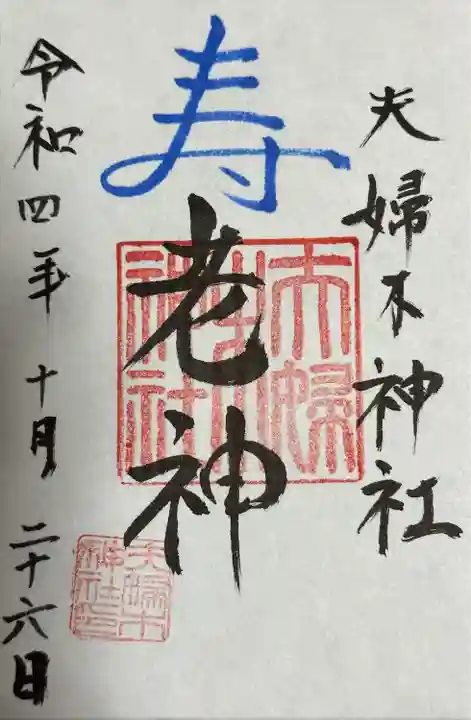 夫婦木神社
寿
老神
夫婦木神社
令和四年十月二十六日
夫婦木神社印